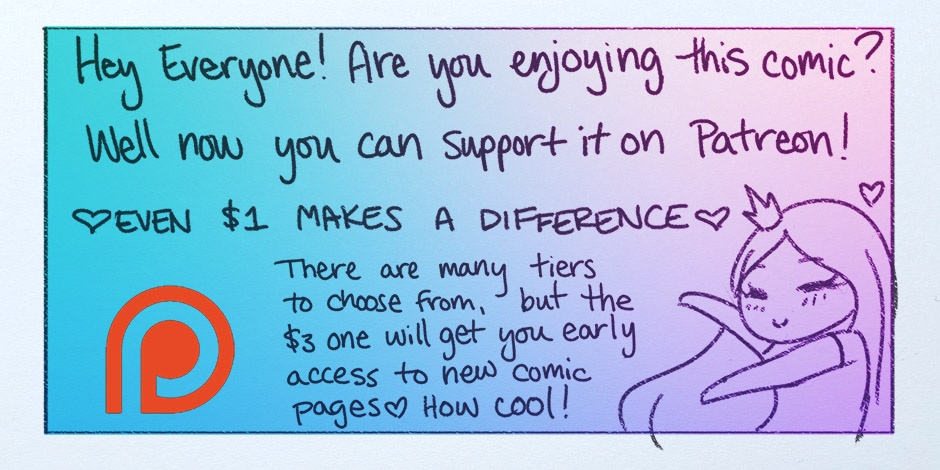 Hey Everyone! Are you enjoying this comic?
Well now you can support it on Patreon!
♡EVEN $1 MAKES A DIFFERENCE♡
There are many tiers
to choose from, but the
$3 one will get you early
access to new comic
pages♡ How cool!